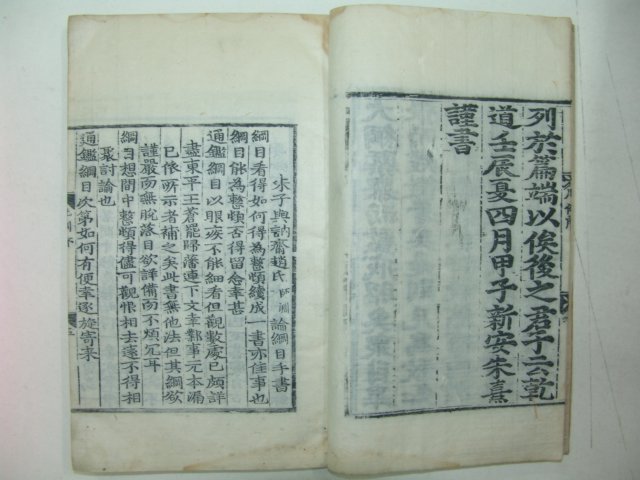 列於篇端以俟後之君子云乾
道壬辰夏四月甲子新安朱熹
謹書
朱子與訥齋趙氏師淵論綱目手書
綱目看得如何得爲整頓續成一書亦佳事也
綱目能爲整頓否得留念幸甚
通鑑綱目以眼疾不能細看但觀數處已頗詳
盡東平王蒼罷歸藩連下文幸鄴事元本漏
已依所示者補之矣此書無他法但其綱欲
謹嚴而無脫落目欲詳備而不煩冗耳
綱目想閒中整頓得儘可觀恨相去遠不得相
聚討論也
通鑑綱目次第如何有便幸逐旋寄來